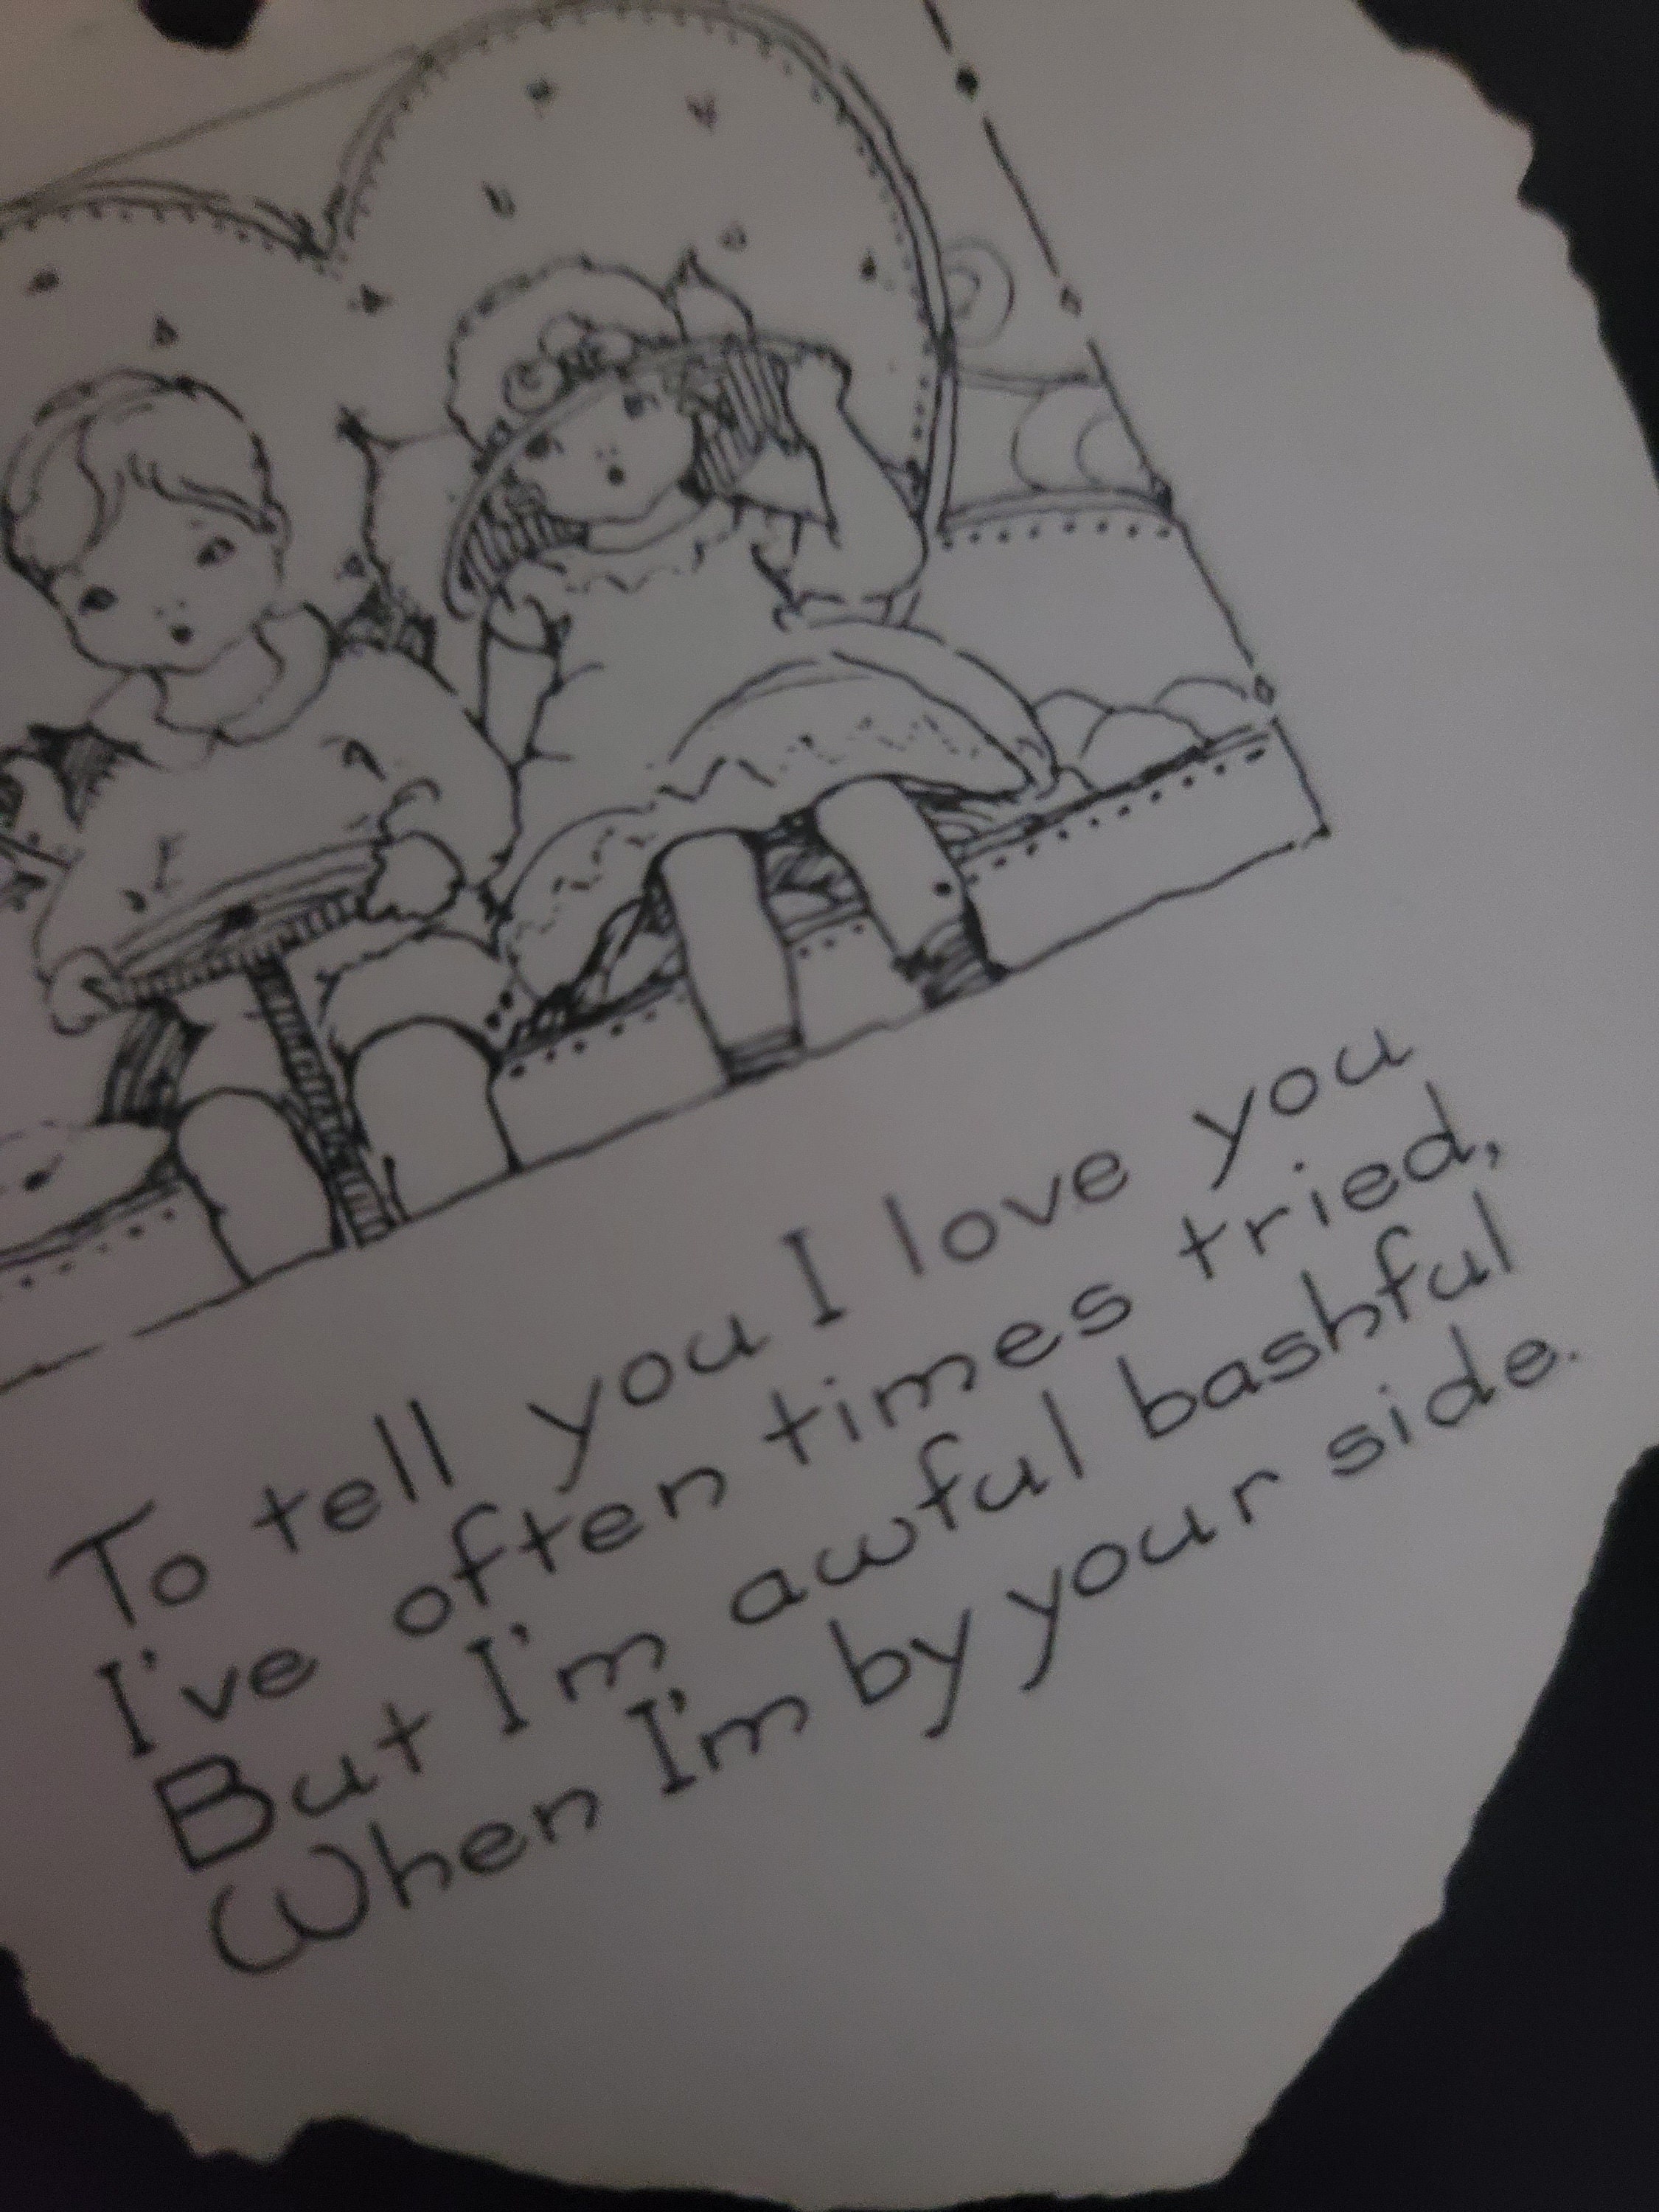 To tell you I love you
I've often times tried,
But I'm awful bashful
When I'm by your side.